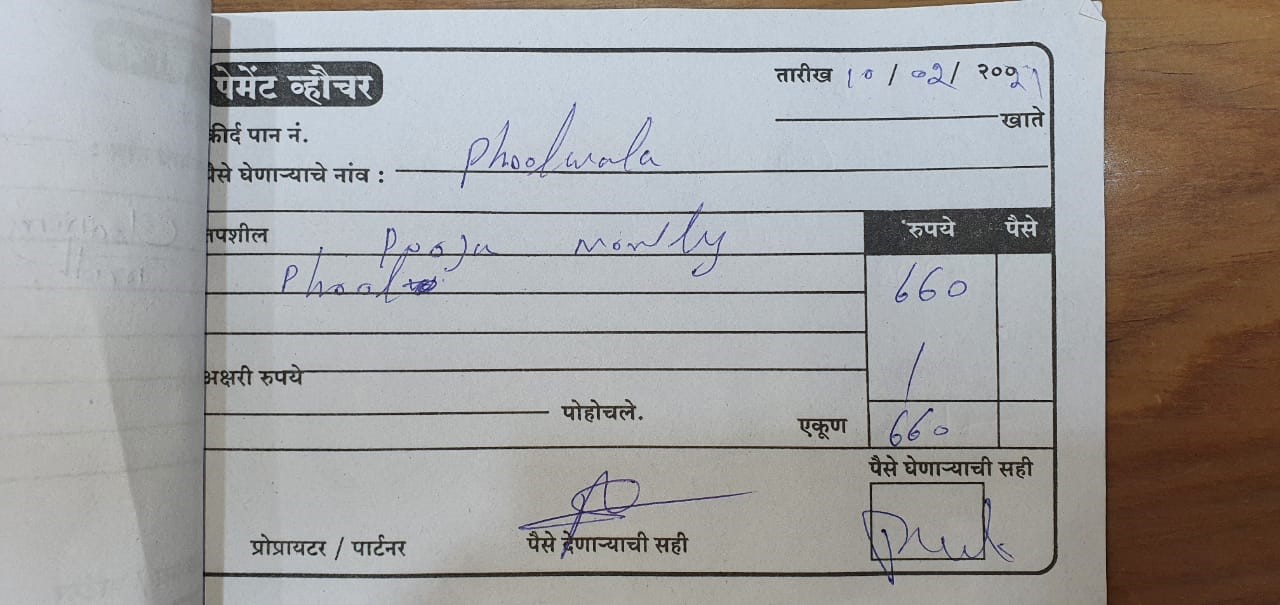 पेमेंट व्हौचर
तारीख 10 / 02 / २००
खाते
कीर्द पान नं.
पैसे घेणाऱ्याचे नांव : Phoolwala
तपशील Pooja Montly रुपये पैसे
Phool 660
अक्षरी रुपये
पोहोचले.
एकूण 660
पैसे घेणाऱ्याची सही
प्रोप्रायटर / पार्टनर पैसे देणाऱ्याची सही